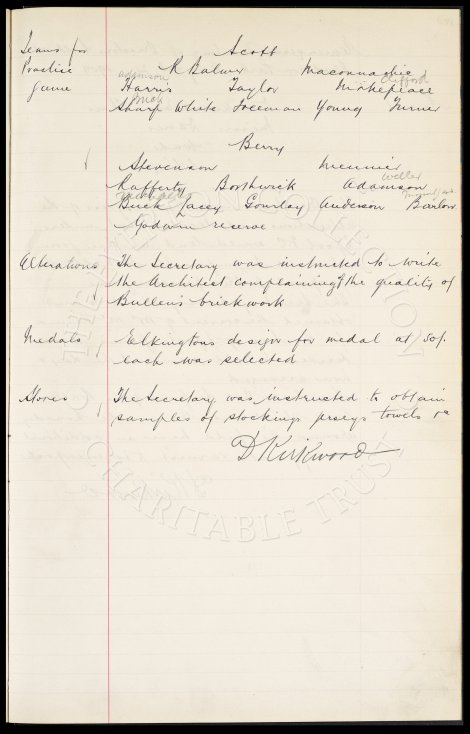 Teams for Scott
Practice R Balmer Maconnachie
adamson Clifford
Game Harris Taylor Makepeace
Buck
Sharp White Freeman Young Turner
Berry
Stevenson Meunier
Weller
Rafferty Borthwick Adamson
Makepeace
Buck Lacey Gourlay Anderson Barlow
Godwin reserve
Alterations The Secretary was instructed to write
the Architect complaining of the quality of
Bullens brickwork
Medals Elkingtons design for medal at 50/-
each was selected
Stores The Secretary was instructed to obtain
samples of stockings jerseys towels &c
D Kirkwood
CHARITABLE TRUST